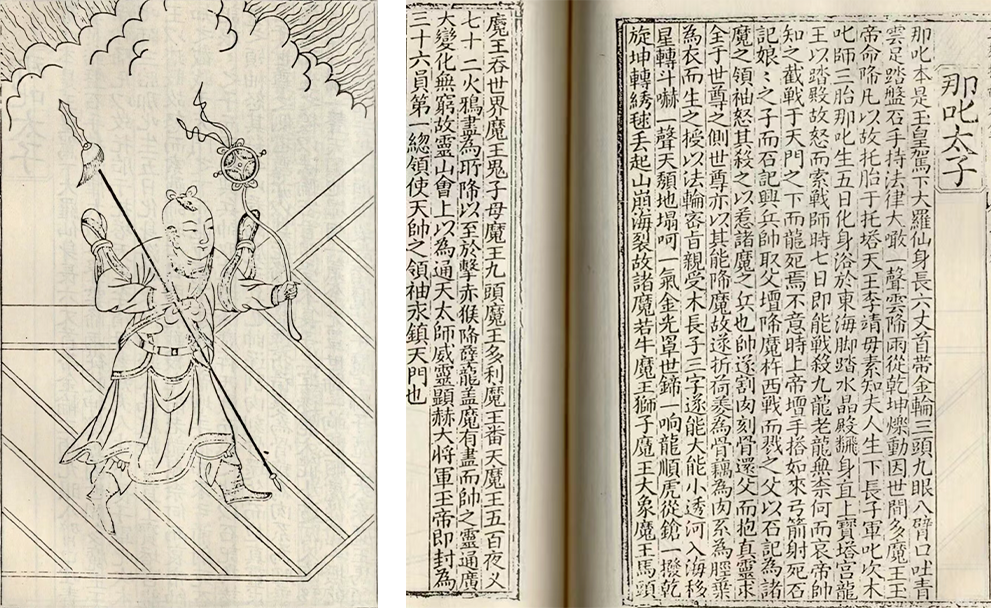 那叱太子
那叱本是玉皇駕下大羅仙身長六丈首帶金輪三頭九眼八臂口吐青
雲足踏盤石手持法律大噉一聲雲降雨從乾坤爍動因世間多魔王玉
帝命降凡以故托胎于托塔天王李靖母素知夫人生下長子軍叱次木
叱帥三胎那叱生五日化身浴於東海脚踏水晶殿飜身直上寶塔宮龍
王以踏殿故怒而索戰帥時七日即能戰殺九龍老龍無柰何而哀帝帥
知之截戰于天門之下而龍死焉不意時上帝壇手搭如來弓箭射死石
記娘〻之子而石記興兵帥取父壇降魔杵西戰而戮之父以石記為諸
魔之領袖怒其殺之以惹諸魔之兵也帥遂割肉刻骨還父而抱真靈求
全于世尊之側世尊亦以其能降魔故遂折荷菱為骨藕為肉系為脛葉
為衣而生之授以法輪密旨親受木長子三字遂能大能小透河入海移
星轉斗嚇一聲天頹地塌呵一氣金光罩世鍗一响龍順虎從鎗一撥乾
旋坤轉綉毬丟起山崩海裂故諸魔若牛魔王獅子魔王大象魔王馬頭
魔王吞世界魔王鬼子母魔王九頭魔王多利魔王番天魔王五百夜乂
七十二火鴉盡為所降以至於擊赤猴降孽龍盖魔有盡而帥之靈通廣
大變化無窮故靈山會上以為通天太師威靈顯赫大將軍玉帝即封為
三十六員第一緫領使天帥之領袖永鎮天門也